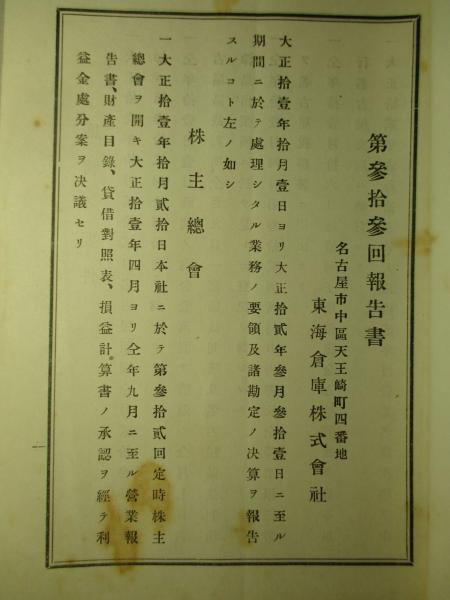 第參拾參回報告書
名古屋市中區天王崎町四番地
東海倉庫株式會社
大正拾壹年拾月壹日ヨリ大正拾貳年參月參拾壹日ニ至ル
期間ニ於テ處理シタル業務ノ要領及諸勘定ノ決算ヲ報告
スルコト左ノ如シ
株主總會
一大正拾壹年拾月貳拾日本社ニ於テ第參拾貳回定時株主
總會ヲ開キ大正拾壹年四月ヨリ仝年九月ニ至ル營業報
告書、財產目錄、貸借對照表、損益計算書ノ承認ヲ經テ利
益金處分案ヲ決議セリ